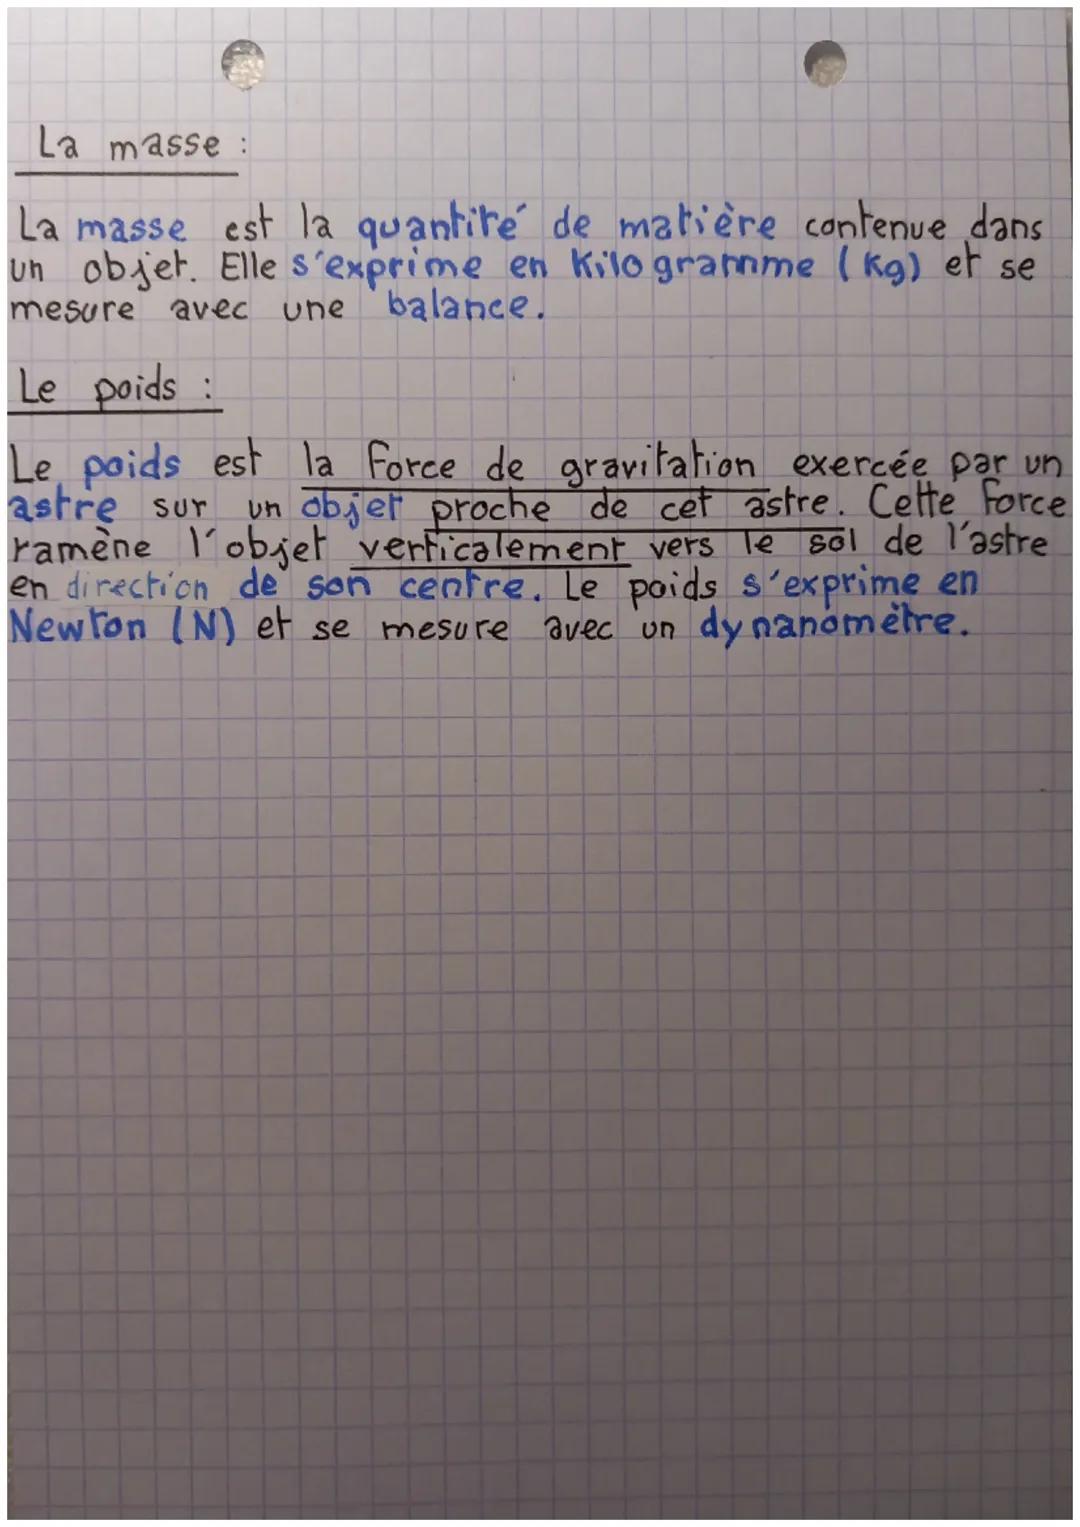 La masse :
La masse est la quantité de matière contenue dans
un objet. Elle s'exprime en Kilogramme (Kg) et se
mesure avec une balance.
Le poids :
Le poids est la force de gravitation exercée par un
astre sur un objet proche de cet astre. Cette force
ramène l'objet verticalement vers le sol de l'astre
en direction de son centre. Le poids s'exprime en
Newton (N) et se mesure avec un dynanomètre.